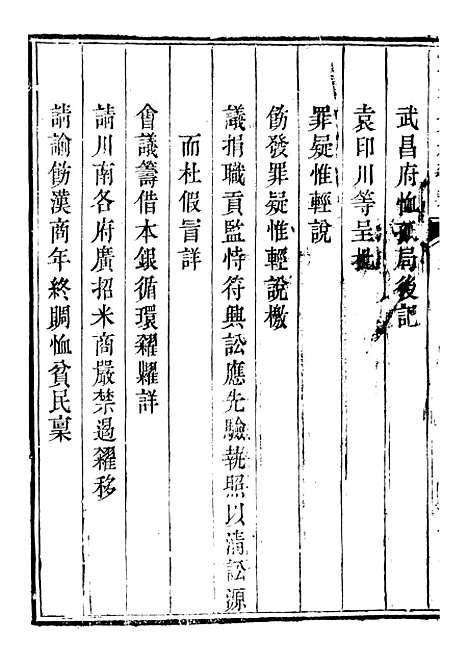 武昌府恤孤局後記
袁印川等呈批
罪疑惟輕說
飭發罪疑惟輕說檄
議捐職貢監恃符興訟應先驗執照以淸訟源
而杜假冒詳
會議籌借本銀循環糴糶詳
請川南各府廣招米商嚴禁遏糴移
請諭飭漢商年終賙恤貧民稟